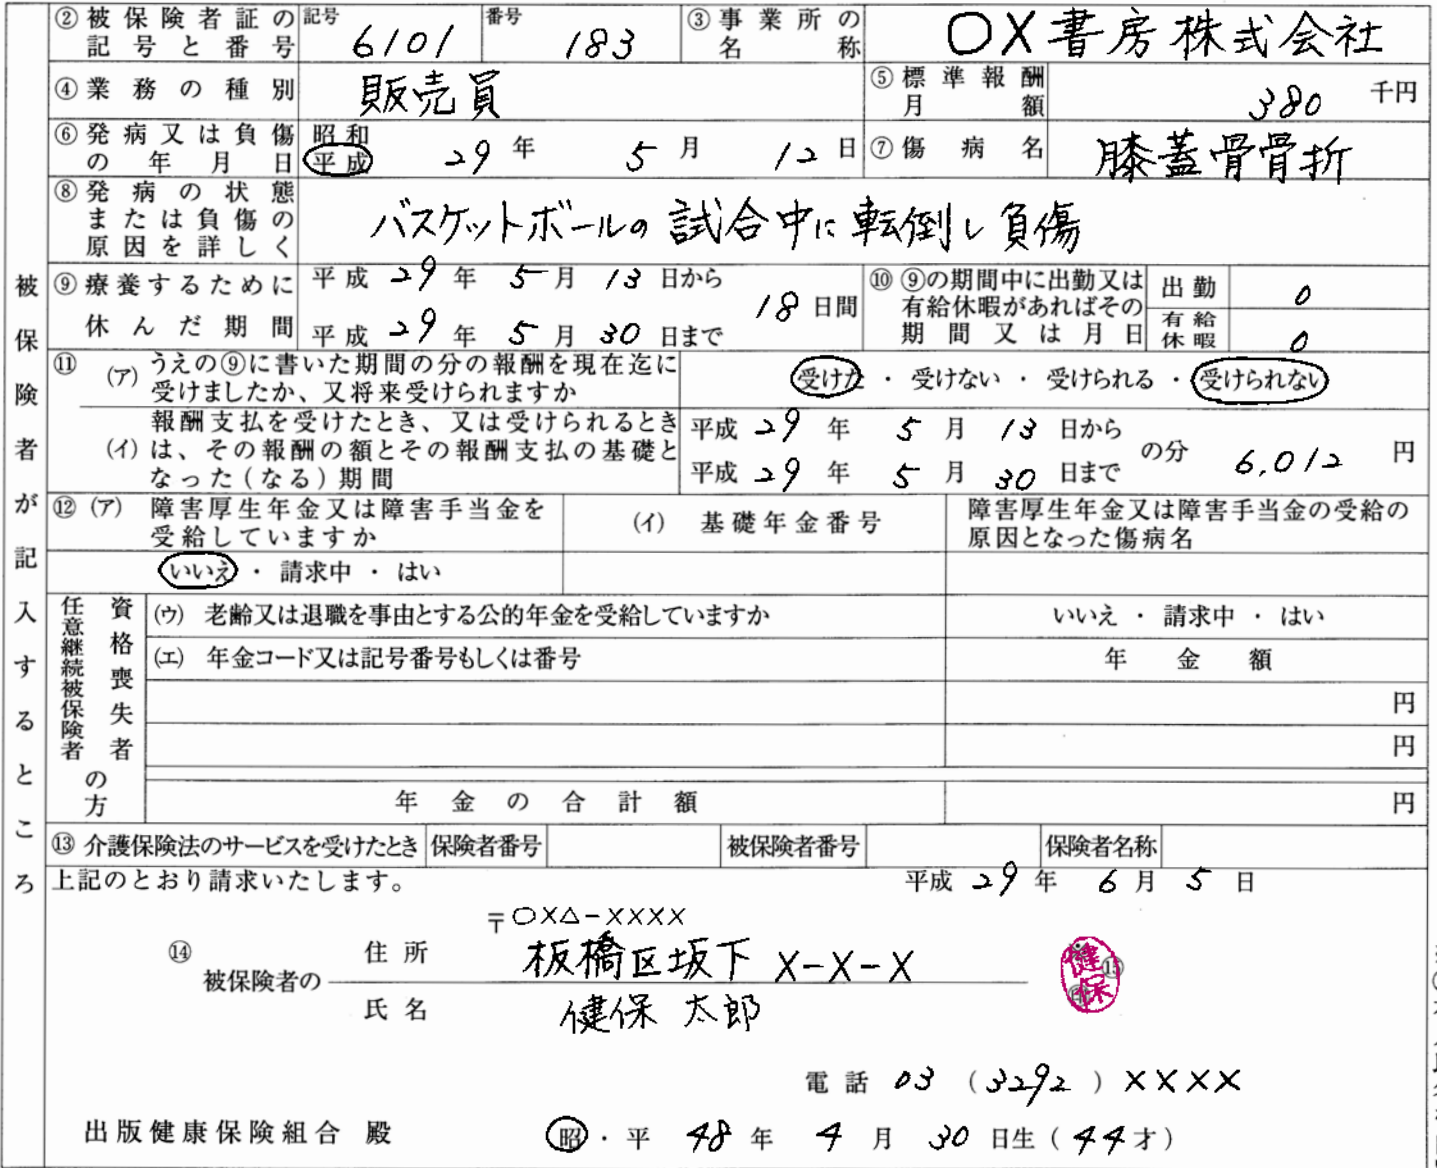 ②被保険者証の記号と番号 記号 6101 番号 183 ③事業所の名称 〇X書房株式会社
④業務の種別 販売員 ⑤標準報酬月額 380 千円
⑥発病又は負傷の年月日 昭和 平成 29年 5月 12日 ⑦傷病名 膝蓋骨骨折
⑧発病の状態または負傷の原因を詳しく バスケットボールの試合中に転倒し負傷
⑨療養するために休んだ期間
平成 29年 5月 13日から
平成 29年 5月 30日まで
18日間
⑩⑨の期間中に出勤又は有給休暇があればその期間又は月日
出勤 0
有給休暇 0
⑪(ア) うえの⑨に書いた期間の分の報酬を現在迄に
受けましたか、又将来受けられますか
受けた・受けない・受けられる・受けられない
(イ) 報酬支払を受けたとき、又は受けられるとき
は、その報酬の額とその報酬支払の基礎と
なった(なる)期間
平成 29年 5月 13日から
平成 29年 5月 30日まで
の分 6,012 円
⑫(ア) 障害厚生年金又は障害手当金を
受給していますか
(イ) 基礎年金番号
障害厚生年金又は障害手当金の受給の
原因となった傷病名
いいえ・請求中・はい
資格喪失者
任意継続被保険者
の方
(ウ) 老齢又は退職を事由とする公的年金を受給していますか いいえ・請求中・はい
(エ) 年金コード又は記号番号もしくは番号 年金額
円
円
年金の合計額 円
⑬介護保険法のサービスを受けたとき 保険者番号 被保険者番号 保険者名称
上記のとおり請求いたします。 平成 29年 6月 5日
〒〇X△-XXXX
⑭被保険者の
住所 板橋区坂下 X-X-X
氏名 健保 太郎
⑮
健保
電話 03 (3292) XXXX
出版健康保険組合 殿 昭・平 48年 4月 30日生(44才)
被保険者が記入するところ